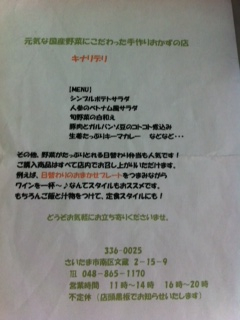 元気な国産野菜にこだわった手作りおかずの店
【MENU】
シンプルポテトサラダ
人参のベトナム風サラダ
旬野菜の白和え
豚肉とガルバンゾ豆のコトコト煮込み
生姜たっぷりキーマカレー などなど・・・
その他、野菜がたっぷりとれる日替わり弁当も人気です！
ご購入商品はすべて店内でお召し上がりいただけます。
例えば、日替わりのおまかせプレートをつまみながら
ワインを一杯～♪なんてスタイルもおススメです。
もちろんご飯と汁物をつけて、定食スタイルにも！
どうぞお気軽にお立ち寄りくださいませ。
336-0025
さいたま市南区文蔵 2-15-9
☎ 048-865-1170
営業時間 11時～14時 16時～20時
不定休（店頭黒板でお知らせいたします）